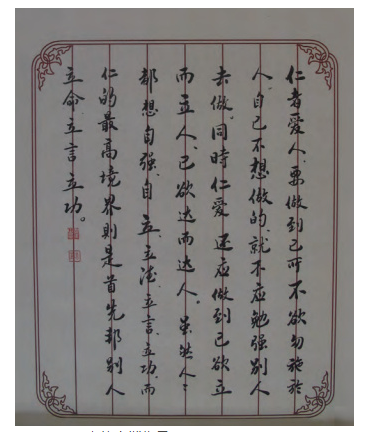 仁者爱人，要做到己所不欲勿施於
人。自己不想做的，就不应勉强别人
去做。同時仁爱还应做到己欲立
而立人，己欲达而达人。虽然人々
都想自强、自立、立德、立言、立功，而
仁的最高境界則是首先帮别人
立命立言立功。